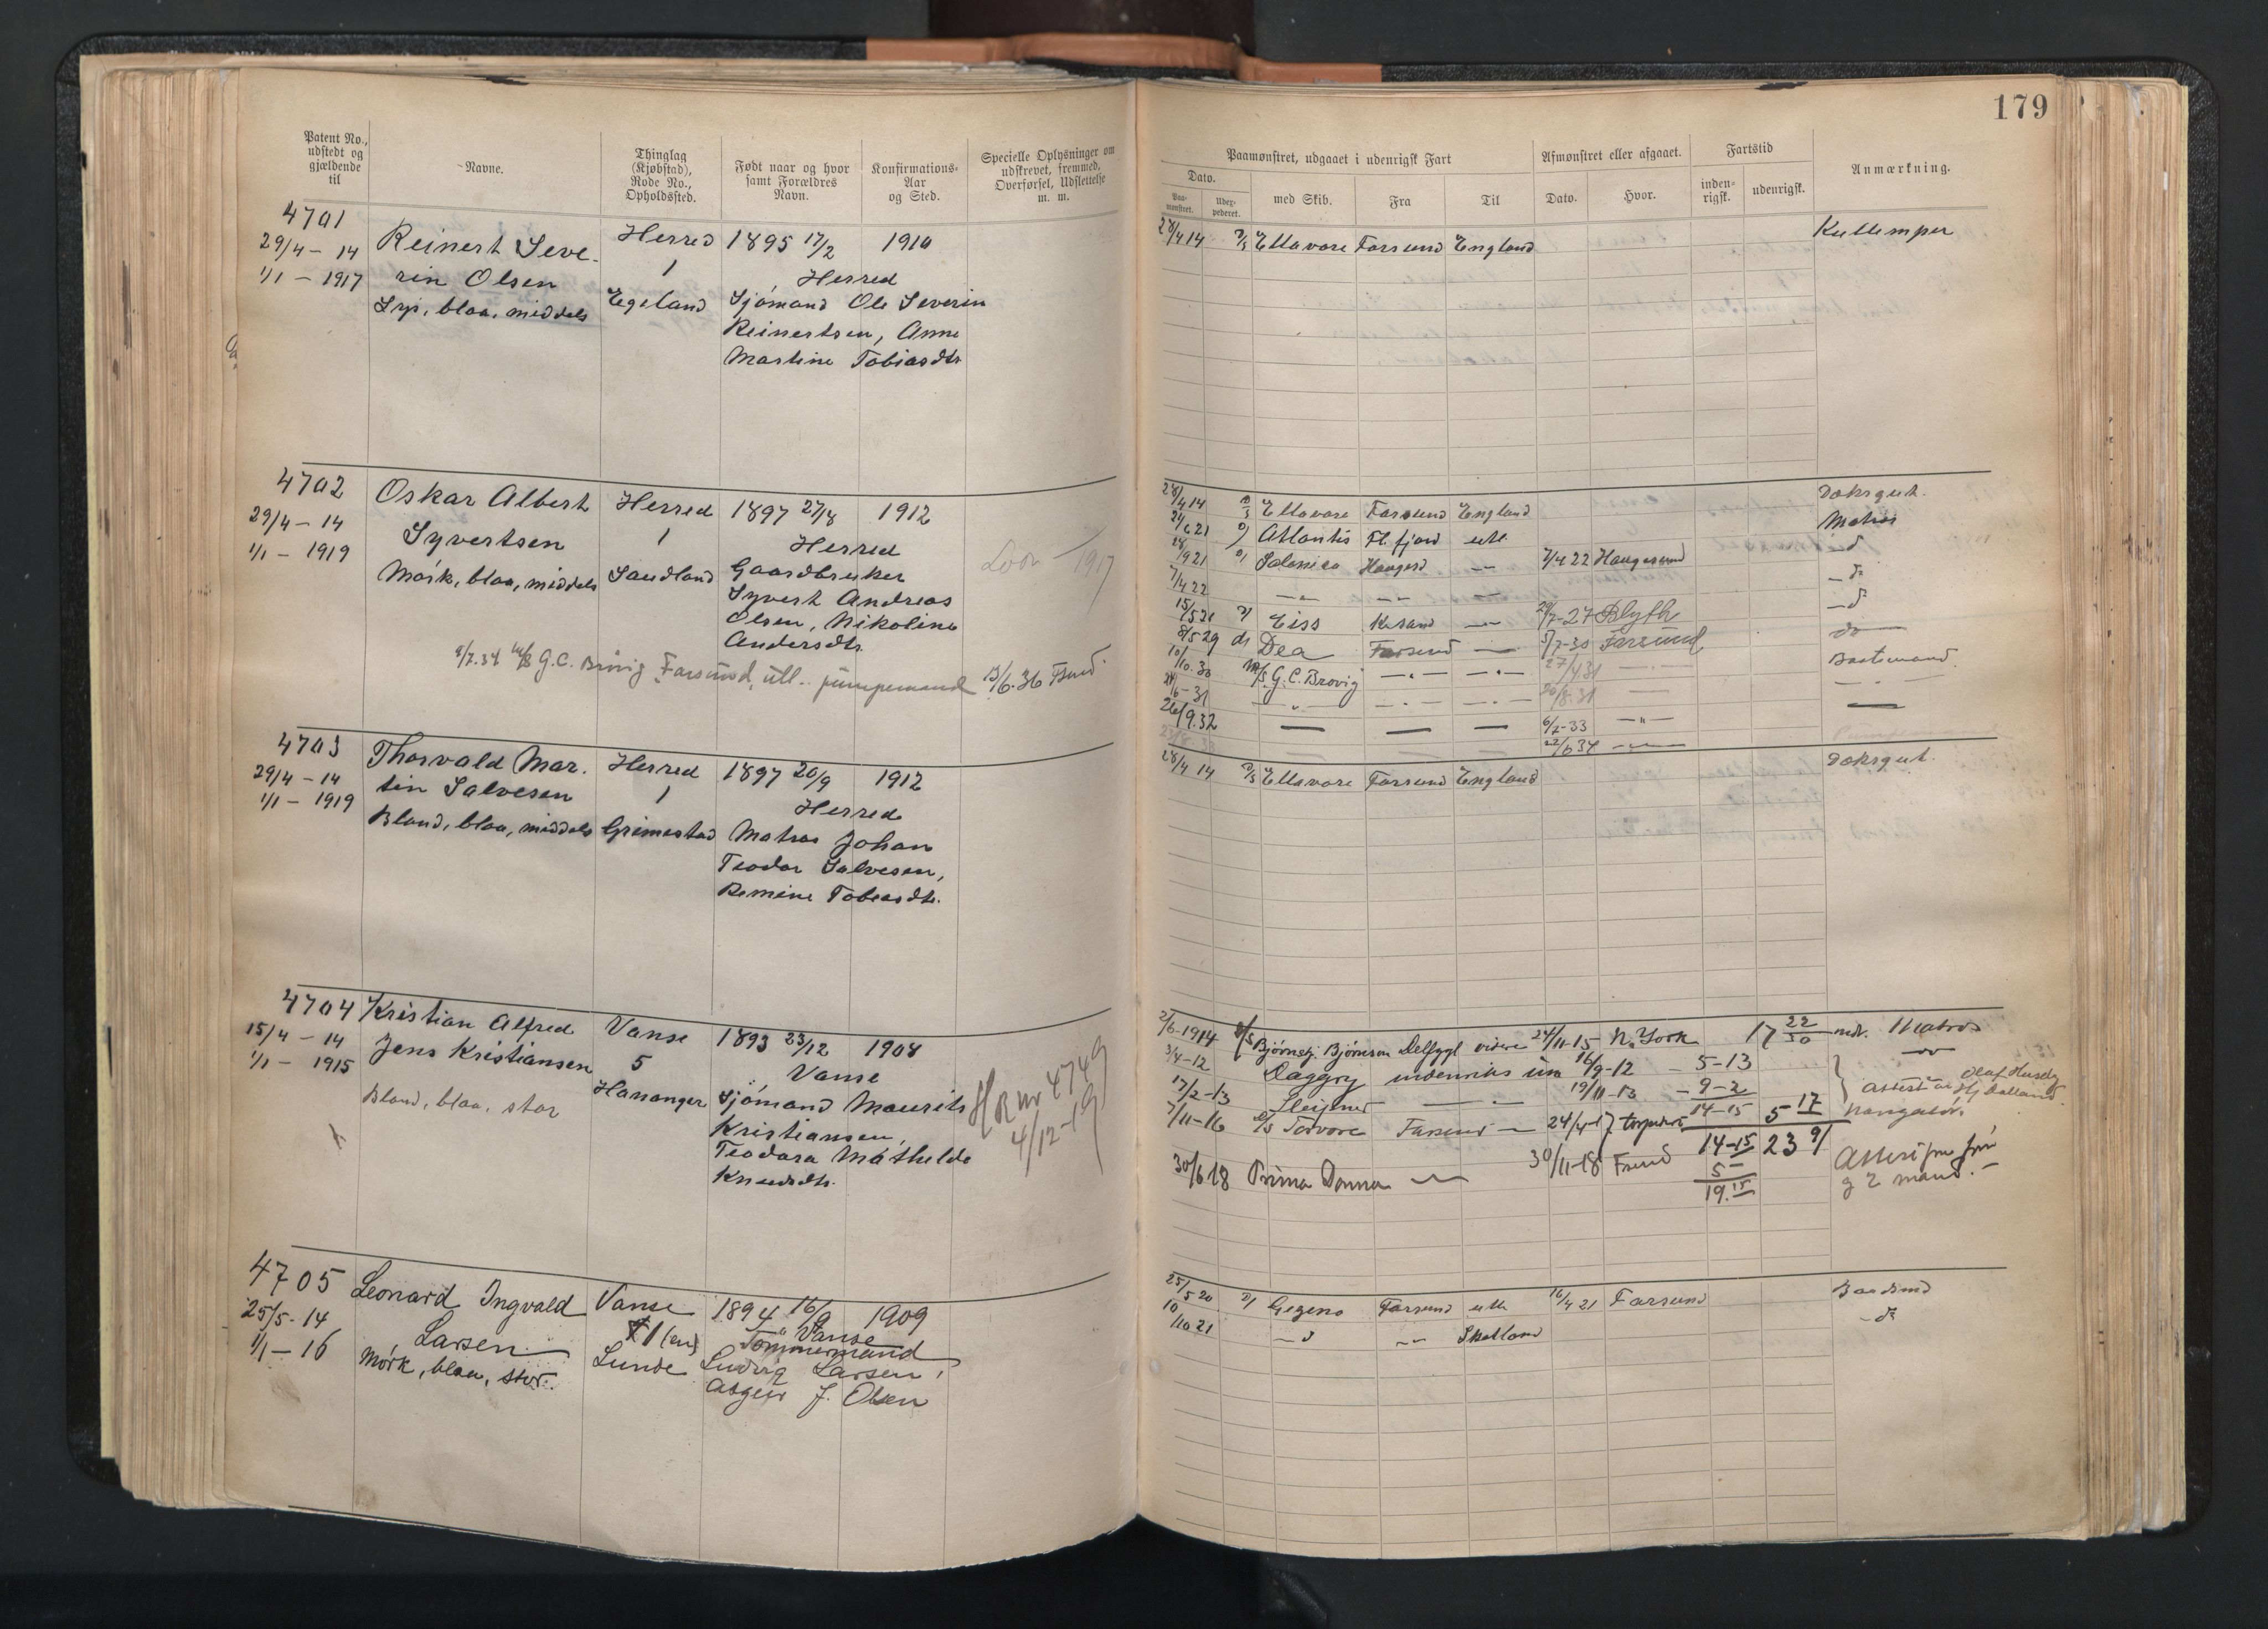 179
Patent No., udstedt og gjældende til
Navne.
Thinglag (Kjøbstad), Rode No., Opholdssted.
Født naar og hvor samt Forældres Navn.
Konfirmations-Aar og Sted.
Specielle Oplysninger om udskrevet, fremmed, Overførsel, Udslettelse m. m.
Paamønstret, udgaaet i udenrigsk Fart
Afmønstret eller afgaaet.
Fartstid
Anmærkning.
Dato.
Paa-mønstret.
Udex-pederet.
med Skib.
Fra
Til
Dato.
Hvor.
inden-rigsk.
udenrigsk.
4701
29/4 - 14
1/1 - 1917
Reinert Seve-
rin Olsen
Lys, blaa, middels
Herred
1
Egeland
1895 17/2 1910
Herred
Sjömand Ole Severin
Reinertsen, Anne
Martine Tobiasdtr
28/4 14 Ellavore Farsund England
Kullemper
4702
29/4 - 14
1/1 - 1919
Oskar Albert
Syvertsen
Mörk, blaa, middels
Herred
1
Sandland
1897 27/8 1912
Herred
Gaardbruker
Syvert Andreas
Olsen, Nikoline
Andersdtr.
1917
G.C. Brövig Farsund, utl. pumpemand 13/6.36 Fsund
28/4 14 Ellavore Farsund England Doksgut.
24/6 21 Atlantis Fl. fjord utl. Matros
28/9 21 Salonica Haugesd — 7/4 22 Haugesund d
7/4 22 — — — d
15/5 21 Eiss Krsand — 29/7-27 Blythe d
8/5 29 ds Dea Farsund — 5/7-30 Farsund do
10/10.30 M/S. G.C. Brovig — — 27/4 31 — Baatsmand
24/6-31 — — — 20/8.31 — —
26/9.32 — — — 6/7-33 — —
22/6 34 —
4703
29/4 - 14
1/1 - 1919
Thorvald Mar-
tin Salvesen
Blond, blaa, middels
Herred
1
Grimestad
1897 20/9 1912
Herred
Matros Johan
Teodor Salvesen,
Bemine Tobiasdtr.
28/4 14 Ellavore Farsund England
Doksgut.
4704
15/4 - 14
1/1 - 1915
Kristian Alfred
Jens Kristiansen
Blond, blaa, stor
Vanse
5
Hananger
1893 23/12 1908
Vanse
Sjömand Maurits
Kristiansen,
Teodora Mathilde
Knudsdtr.
HR nr 4749
4/12-19
2/6-1914 Bjørnstj. Bjørnson Delfzyl videre 24/11-15 N. York 17 22/30 mdr. Matros
3/4-12 Daggry indenriks 16/9-12 — 5-13
17/2-13 Sleipner — 19/11-13 — 9-2
14-15 5 17
7/11-16 Torvore Farsund — 24/4-17 torpedert
14-15 23 9/
30/6 18 Prima Donna — 30/11-18 Fsund 5 —
19.15
Attest fra
g 2 mand. —
4705
25/5-14
1/1-16
Leonard Ingvald
Larsen
Mörk, blaa, stor.
Vanse
1 (en)
Lunde
1894 16/9 1909
Vanse
Tömmermand
Ludvig Larsen,
Asgeir J. Olsen
25/5 20 Gezena Farsund utl. 16/4 21 Farsund
10/10 21 — — Skotland